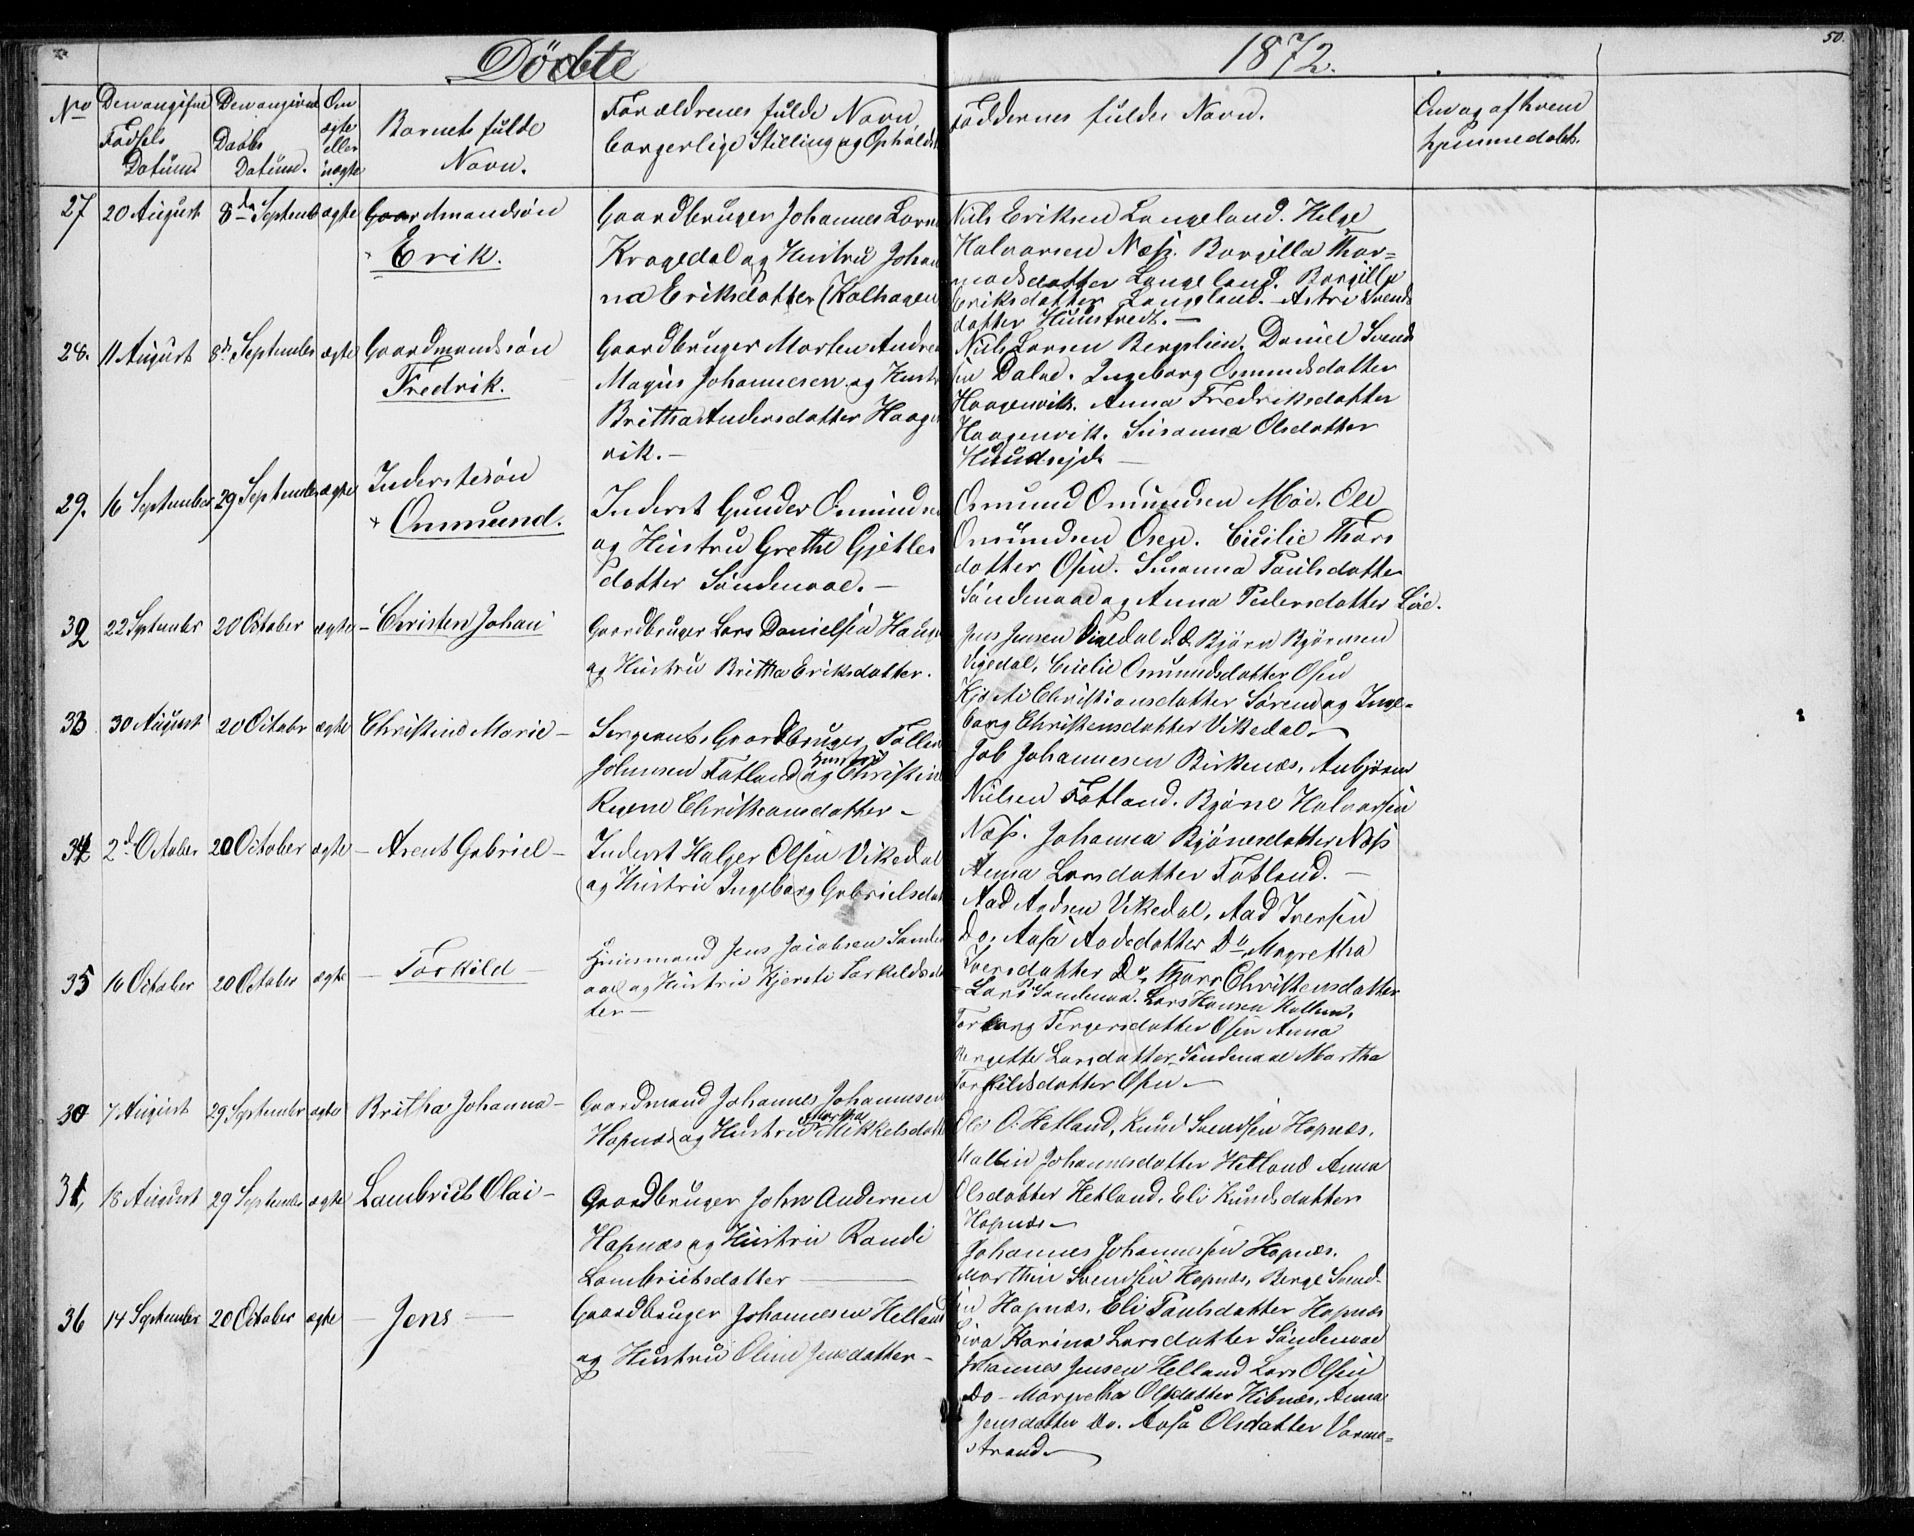 Döbte
1872.
50.
No
Den angifne Fødsels Datum
Den angivne Daabs Datum.
Om ægte eller uægte
Barnets fulde Navn.
Forældrenes fulde Navn
borgerlige Stilling og Ophold
Faddernes fulde Navn.
Om og af hvem hjemmedøbt.
27 20 August 8de Septemb ægte Gaardmandsøn
Erik.
Gaardbruger Johannes
Kragedal og Hustru Johan
na Eriksdatter (Kolhagen
Nils Eriksen Langeland. Helge
Halvorsen Næss. Borgilla Thor=
modsdatter Langeland. Borgilla
Eriksdatter Langeland. Astri Svends
datter Hunstvedt.—
28. 11 August 8de September ægte Gaardmandsøn
Fredrik.
Gaardbruger Morten Andrea
Magus Johannesen og Hust
Britha Andersdatter Haage
vik.—
Nils Larsen Bergslien. Daniel Svend
sen Dalve. Ingeborg Osmundsdatter
Haagenvik. Anna Fredriksdatter
Haagenvik. Susanna Olsdatter
29. 16 September 29 September ægte Inderstesøn
Ommund.
Inderst Gunder Omunds
og Hustru Grethe Gjetles
datter Søndenaae.—
Omund Omundsen Møe. Ole
Omundsen Osen. Cicilie Thors
datter Osen. Susanna Paulsdatter
Søndenaae og Anna Pedersdatter Løe.
32 22 September 20 October ægte – Christen Johan
Gaardbruger Lars Danielsen Hauge
og Hustru Britha Eriksdatter.
Jens Jensen Vikedal. Bjørn Bjørnsen
Vigedal, Cicilie Omundsdatter Osen
Kjersti Christiansdatter og Inge=
borg Christensdatter Vikedal—
33 30 August 20 Octobr ægte Christine Marie –
Sergeant, Gaardbruger Tollen
Johnsen Fatland og Hustru Christine
Regene Christiansdatter –
Job Johannesen Birkenæs, Anbjørn
Nielsen Fatland. Bjøne Halvorsen
Næss. Johanna Bjønesdatter Næss
Anna Larsdatter Fatland.—
34 2d October 20 October ægte – Arent Gabriel –
Inderst Holger Olsen Vikedal
og Hustru Ingeborg Gabrielsdat
Aad Aadsen Vikedal, Aad Iversen
Do. Aasa Aadsdatter Do Magretha
Iversdatter Do, Thore Christensdatter
35 16 October 20 October ægte – Torkild –
Huusmand Jens Jacobsen Sønde
aae og Hustru Kjersti Torkeldsda
ter—
Lars Søndenaa. Lars Hansen
Torborg Tergersdatter Osen Anna
Bergette Larsdatter Søndenaae Martha
Torkildsdatter Osen—
30 7 August 29 Septembr ægte Britha Johanna –
Gaardmand Johannes Johannesen
Hapnæs og Hustru Martha Mikkelsdatt
Ole O. Hetland, Knud Svendsen Hapnæs.
Mallin Johannesdatter Hetland Anna
Olsdatter Hetland. Eli Knudsdatter
Hapnæs—
31, 18 August 29 September ægte Lambricts Olai –
Gaardbruger John Andersen
Hapnæs og Hustru Randi
Lambrictsdatter —
Johannes Johannessen Hapnæs.
Marthin Svendsen Hapnæs, Berge Svend
en Hapnæs. Eli Paulsdatter Hapnæs
Siva Karina Larsdatter Søndenaae
36 14 September 20 October ægte – Jens –
Gaardbruger Johannesen Helland
og Hustru Oline Jensdatter –
Johannes Jensen Helland Lars Olsen
Do – Margretha Olsdatter Hibnæs, Anna
Jensdatter Do. Aasa Olsdatter Varme=
strand—